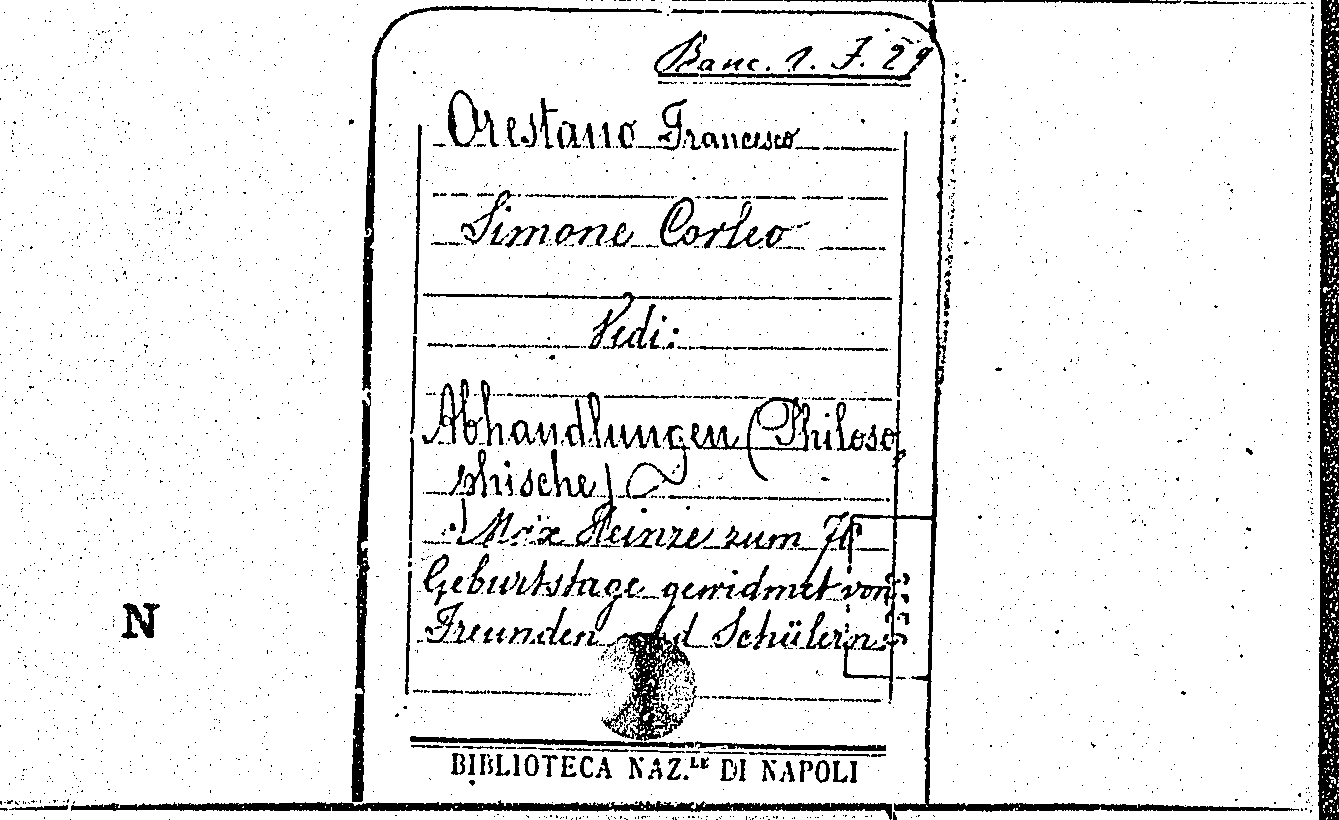 Banc. 1. F. 29
Orestano Francesco
Simone Corleo
Vedi:
Abhandlungen (Philoso
phische)
Max Heinze zum 70
Geburtstage gewidmet von
Freunden und Schülern
N
BIBLIOTECA NAZ.LE DI NAPOLI